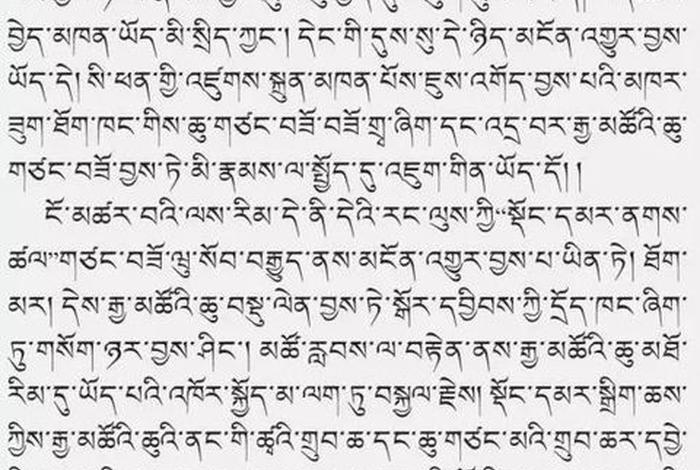 བྱེད་མཁན་ཡོད་མི་སྲིད་ཀྱང་། དེང་གི་དུས་སུ་དེ་ཉིད་མངོན་འགྱུར་བྱས་
ཡོད་དེ། སི་ཕན་གྱི་འཛུགས་སྐྲུན་མཁན་པོས་ཇུས་འགོད་བྱས་པའི་མཁར་
ཟུག་ཐོག་ཁང་གིས་ཆུ་གཙང་བཟོ་བཟོ་གྲྭ་ཞིག་དང་འདྲ་བར་རྒྱ་མཚོའི་ཆུ་
གཙང་བཟོ་བྱས་ཏེ་མི་རྣམས་ལ་སྤྱོད་དུ་འཇུག་གིན་ཡོད་དོ། །
ངོ་མཚར་བའི་ལས་རིམ་དེ་ནི་དེའི་རང་ལུས་ཀྱི“སྡོང་དམར་ནགས་
ཚལ”གཙང་བཟོ་ཝུ་སོབ་བརྒྱུད་ནས་མངོན་འགྱུར་བྱས་པ་ཡིན་ཏེ། ཐོག་
མར། དེས་རྒྱ་མཚོའི་ཆུ་བསྡུ་ལེན་བྱས་ཏེ་སྒོར་དབྱིབས་ཀྱི་དྲོད་ཁང་ཞིག་
ཏུ་གསོག་ཉར་བྱས་ཤིང་། མཚོ་རླབས་ལ་བརྟེན་ནས་རྒྱ་མཚོའི་ཆུ་མཐོ་
རིམ་དུ་ཡོད་པའི་འཁོར་སྐྱོད་མ་ལག་ཏུ་བསྐྱལ་རྗེས། སྡོང་དམར་སྒྲིག་ཆས་
ཀྱིས་རྒྱ་མཚོའི་ཆུའི་ནང་གི་ཚྭའི་གྲུབ་ཆ་དང་ཆུ་གཙང་མའི་གྲུབ་ཆར་དབྱེ་